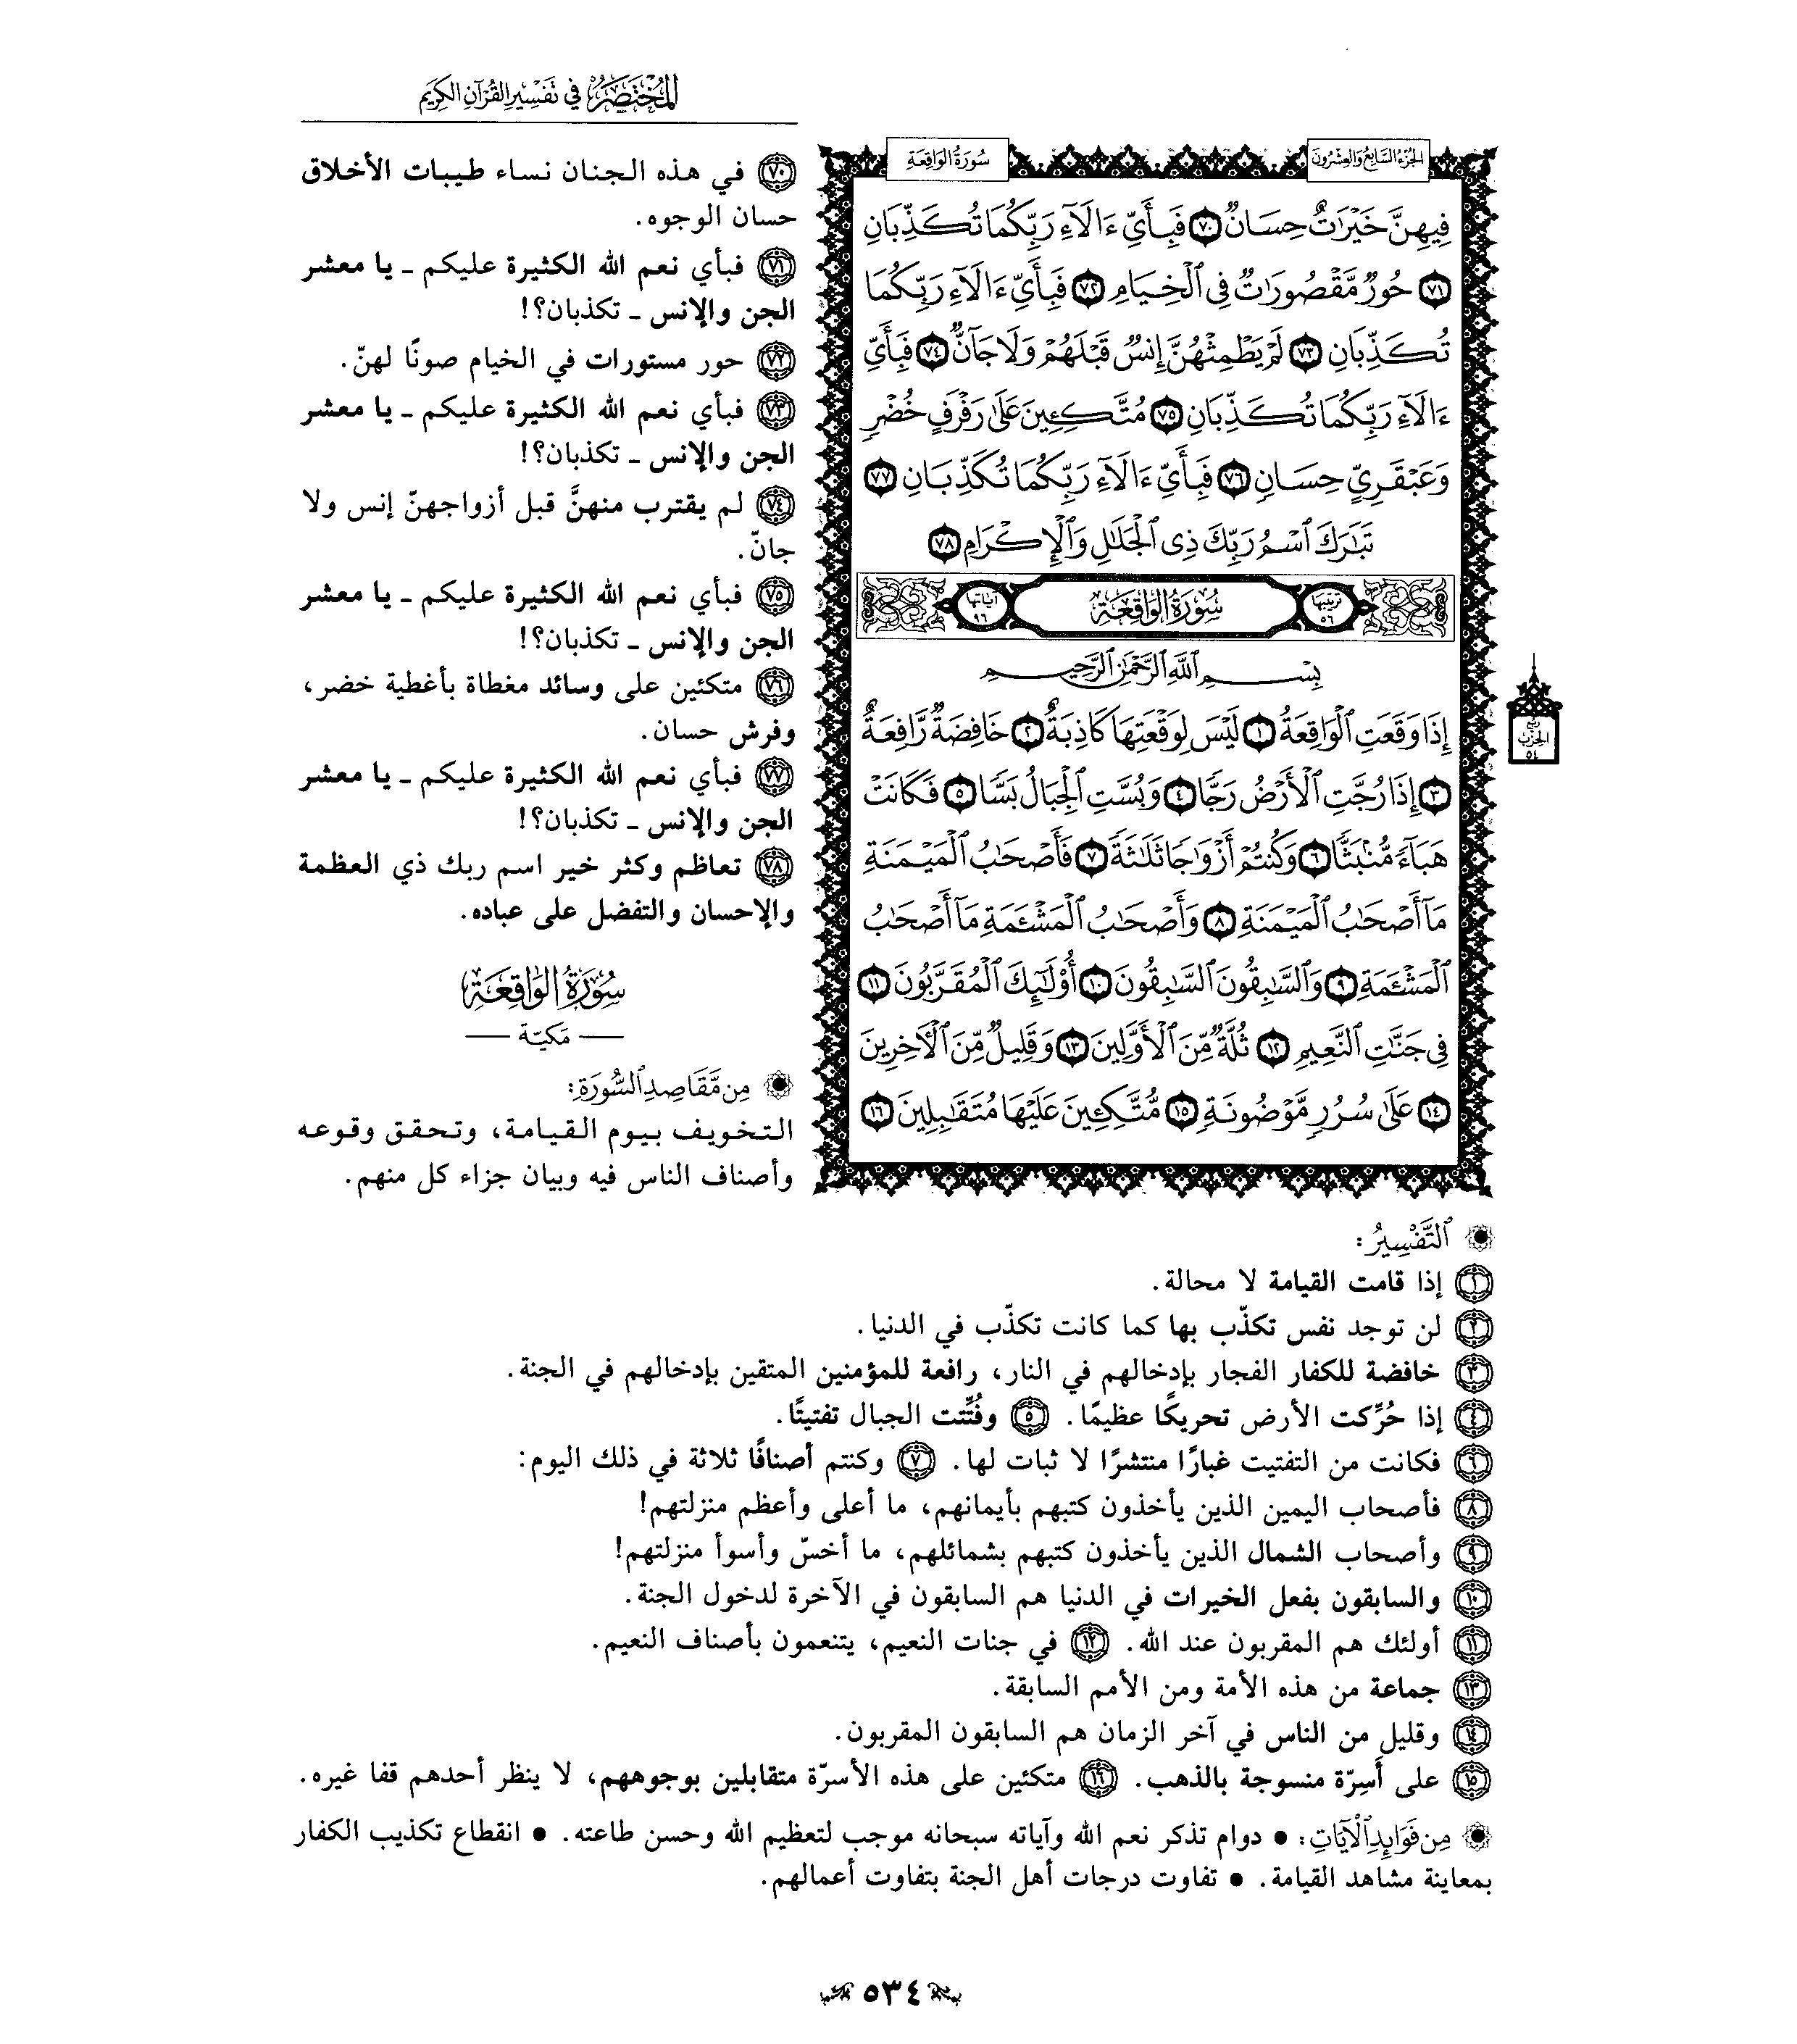 المُخْتَصَرُ فِي تَفْسِيرِ القُرْآنِ الكَرِيمِ
الجُزْءُ السَّابِعُ وَالعِشْرُونَ
سُورَةُ الوَاقِعَةِ
فِيهِنَّ خَيْرَٰتٌ حِسَانٌ ٧٠ فَبِأَيِّ ءَالَآءِ رَبِّكُمَا تُكَذِّبَانِ
٧١ حُورٌ مَّقْصُورَٰتٌ فِي ٱلْخِيَامِ ٧٢ فَبِأَيِّ ءَالَآءِ رَبِّكُمَا
تُكَذِّبَانِ ٧٣ لَمْ يَطْمِثْهُنَّ إِنسٌ قَبْلَهُمْ وَلَا جَآنٌّ ٧٤ فَبِأَيِّ
ءَالَآءِ رَبِّكُمَا تُكَذِّبَانِ ٧٥ مُتَّكِـِٔينَ عَلَىٰ رَفْرَفٍ خُضْرٍ
وَعَبْقَرِيٍّ حِسَانٍ ٧٦ فَبِأَيِّ ءَالَآءِ رَبِّكُمَا تُكَذِّبَانِ ٧٧
تَبَٰرَكَ ٱسْمُ رَبِّكَ ذِي ٱلْجَلَٰلِ وَٱلْإِكْرَامِ ٧٨
ترتيبها ٥٦
سُورَةُ الوَاقِعَةِ
آياتها ٩٦
بِسْمِ ٱللَّهِ ٱلرَّحْمَٰنِ ٱلرَّحِيمِ
إِذَا وَقَعَتِ ٱلْوَاقِعَةُ ١ لَيْسَ لِوَقْعَتِهَا كَاذِبَةٌ ٢ خَافِضَةٌ رَّافِعَةٌ
٣ إِذَا رُجَّتِ ٱلْأَرْضُ رَجًّا ٤ وَبُسَّتِ ٱلْجِبَالُ بَسًّا ٥ فَكَانَتْ
هَبَآءً مُّنۢبَثًّا ٦ وَكُنتُمْ أَزْوَٰجًا ثَلَٰثَةً ٧ فَأَصْحَٰبُ ٱلْمَيْمَنَةِ
مَآ أَصْحَٰبُ ٱلْمَيْمَنَةِ ٨ وَأَصْحَٰبُ ٱلْمَشْـَٔمَةِ مَآ أَصْحَٰبُ
ٱلْمَشْـَٔمَةِ ٩ وَٱلسَّٰبِقُونَ ٱلسَّٰبِقُونَ ١٠ أُوْلَٰٓئِكَ ٱلْمُقَرَّبُونَ ١١
فِي جَنَّٰتِ ٱلنَّعِيمِ ١٢ ثُلَّةٌ مِّنَ ٱلْأَوَّلِينَ ١٣ وَقَلِيلٌ مِّنَ ٱلْءَاخِرِينَ
١٤ عَلَىٰ سُرُرٍ مَّوْضُونَةٍ ١٥ مُّتَّكِـِٔينَ عَلَيْهَا مُتَقَٰبِلِينَ ١٦
ربع
الحزب
٥٤
٧٠ في هذه الجنان نساء طيبات الأخلاق
حسان الوجوه.
٧١ فبأي نعم الله الكثيرة عليكم ـ يا معشر
الجن والإنس ـ تكذبان؟!
٧٢ حور مستورات في الخيام صونًا لهنّ.
٧٣ فبأي نعم الله الكثيرة عليكم ـ يا معشر
الجن والإنس ـ تكذبان؟!
٧٤ لم يقترب منهنَّ قبل أزواجهنّ إنس ولا
جانّ.
٧٥ فبأي نعم الله الكثيرة عليكم ـ يا معشر
الجن والإنس ـ تكذبان؟!
٧٦ متكئين على وسائد مغطاة بأغطية خضر،
وفرش حسان.
٧٧ فبأي نعم الله الكثيرة عليكم ـ يا معشر
الجن والإنس ـ تكذبان؟!
٧٨ تعاظم وكثر خير اسم ربك ذي العظمة
والإحسان والتفضل على عباده.
سُورَةُ الوَاقِعَةِ
— مَكيّة —
مِن مَّقَاصِدِ ٱلسُّورَةِ:
التخويف بيوم القيامة، وتحقق وقوعه
وأصناف الناس فيه وبيان جزاء كل منهم.
ٱلتَّفْسِيرُ:
١ إذا قامت القيامة لا محالة.
٢ لن توجد نفس تكذّب بها كما كانت تكذّب في الدنيا.
٣ خافضة للكفار الفجار بإدخالهم في النار، رافعة للمؤمنين المتقين بإدخالهم في الجنة.
٤ إذا حُرِّكت الأرض تحريكًا عظيمًا. ٥ وفُتِّتت الجبال تفتيتًا.
٦ فكانت من التفتيت غبارًا منتشرًا لا ثبات لها. ٧ وكنتم أصنافًا ثلاثة في ذلك اليوم:
٨ فأصحاب اليمين الذين يأخذون كتبهم بأيمانهم، ما أعلى وأعظم منزلتهم!
٩ وأصحاب الشمال الذين يأخذون كتبهم بشمائلهم، ما أخسّ وأسوأ منزلتهم!
١٠ والسابقون بفعل الخيرات في الدنيا هم السابقون في الآخرة لدخول الجنة.
١١ أولئك هم المقربون عند الله. ١٢ في جنات النعيم، يتنعمون بأصناف النعيم.
١٣ جماعة من هذه الأمة ومن الأمم السابقة.
١٤ وقليل من الناس في آخر الزمان هم السابقون المقربون.
١٥ على أَسِرّة منسوجة بالذهب. ١٦ متكئين على هذه الأسرّة متقابلين بوجوههم، لا ينظر أحدهم قفا غيره.
مِن فَوَائِدِ ٱلْآيَاتِ: • دوام تذكر نعم الله وآياته سبحانه موجب لتعظيم الله وحسن طاعته. • انقطاع تكذيب الكفار
بمعاينة مشاهد القيامة. • تفاوت درجات أهل الجنة بتفاوت أعمالهم.
٥٣٤